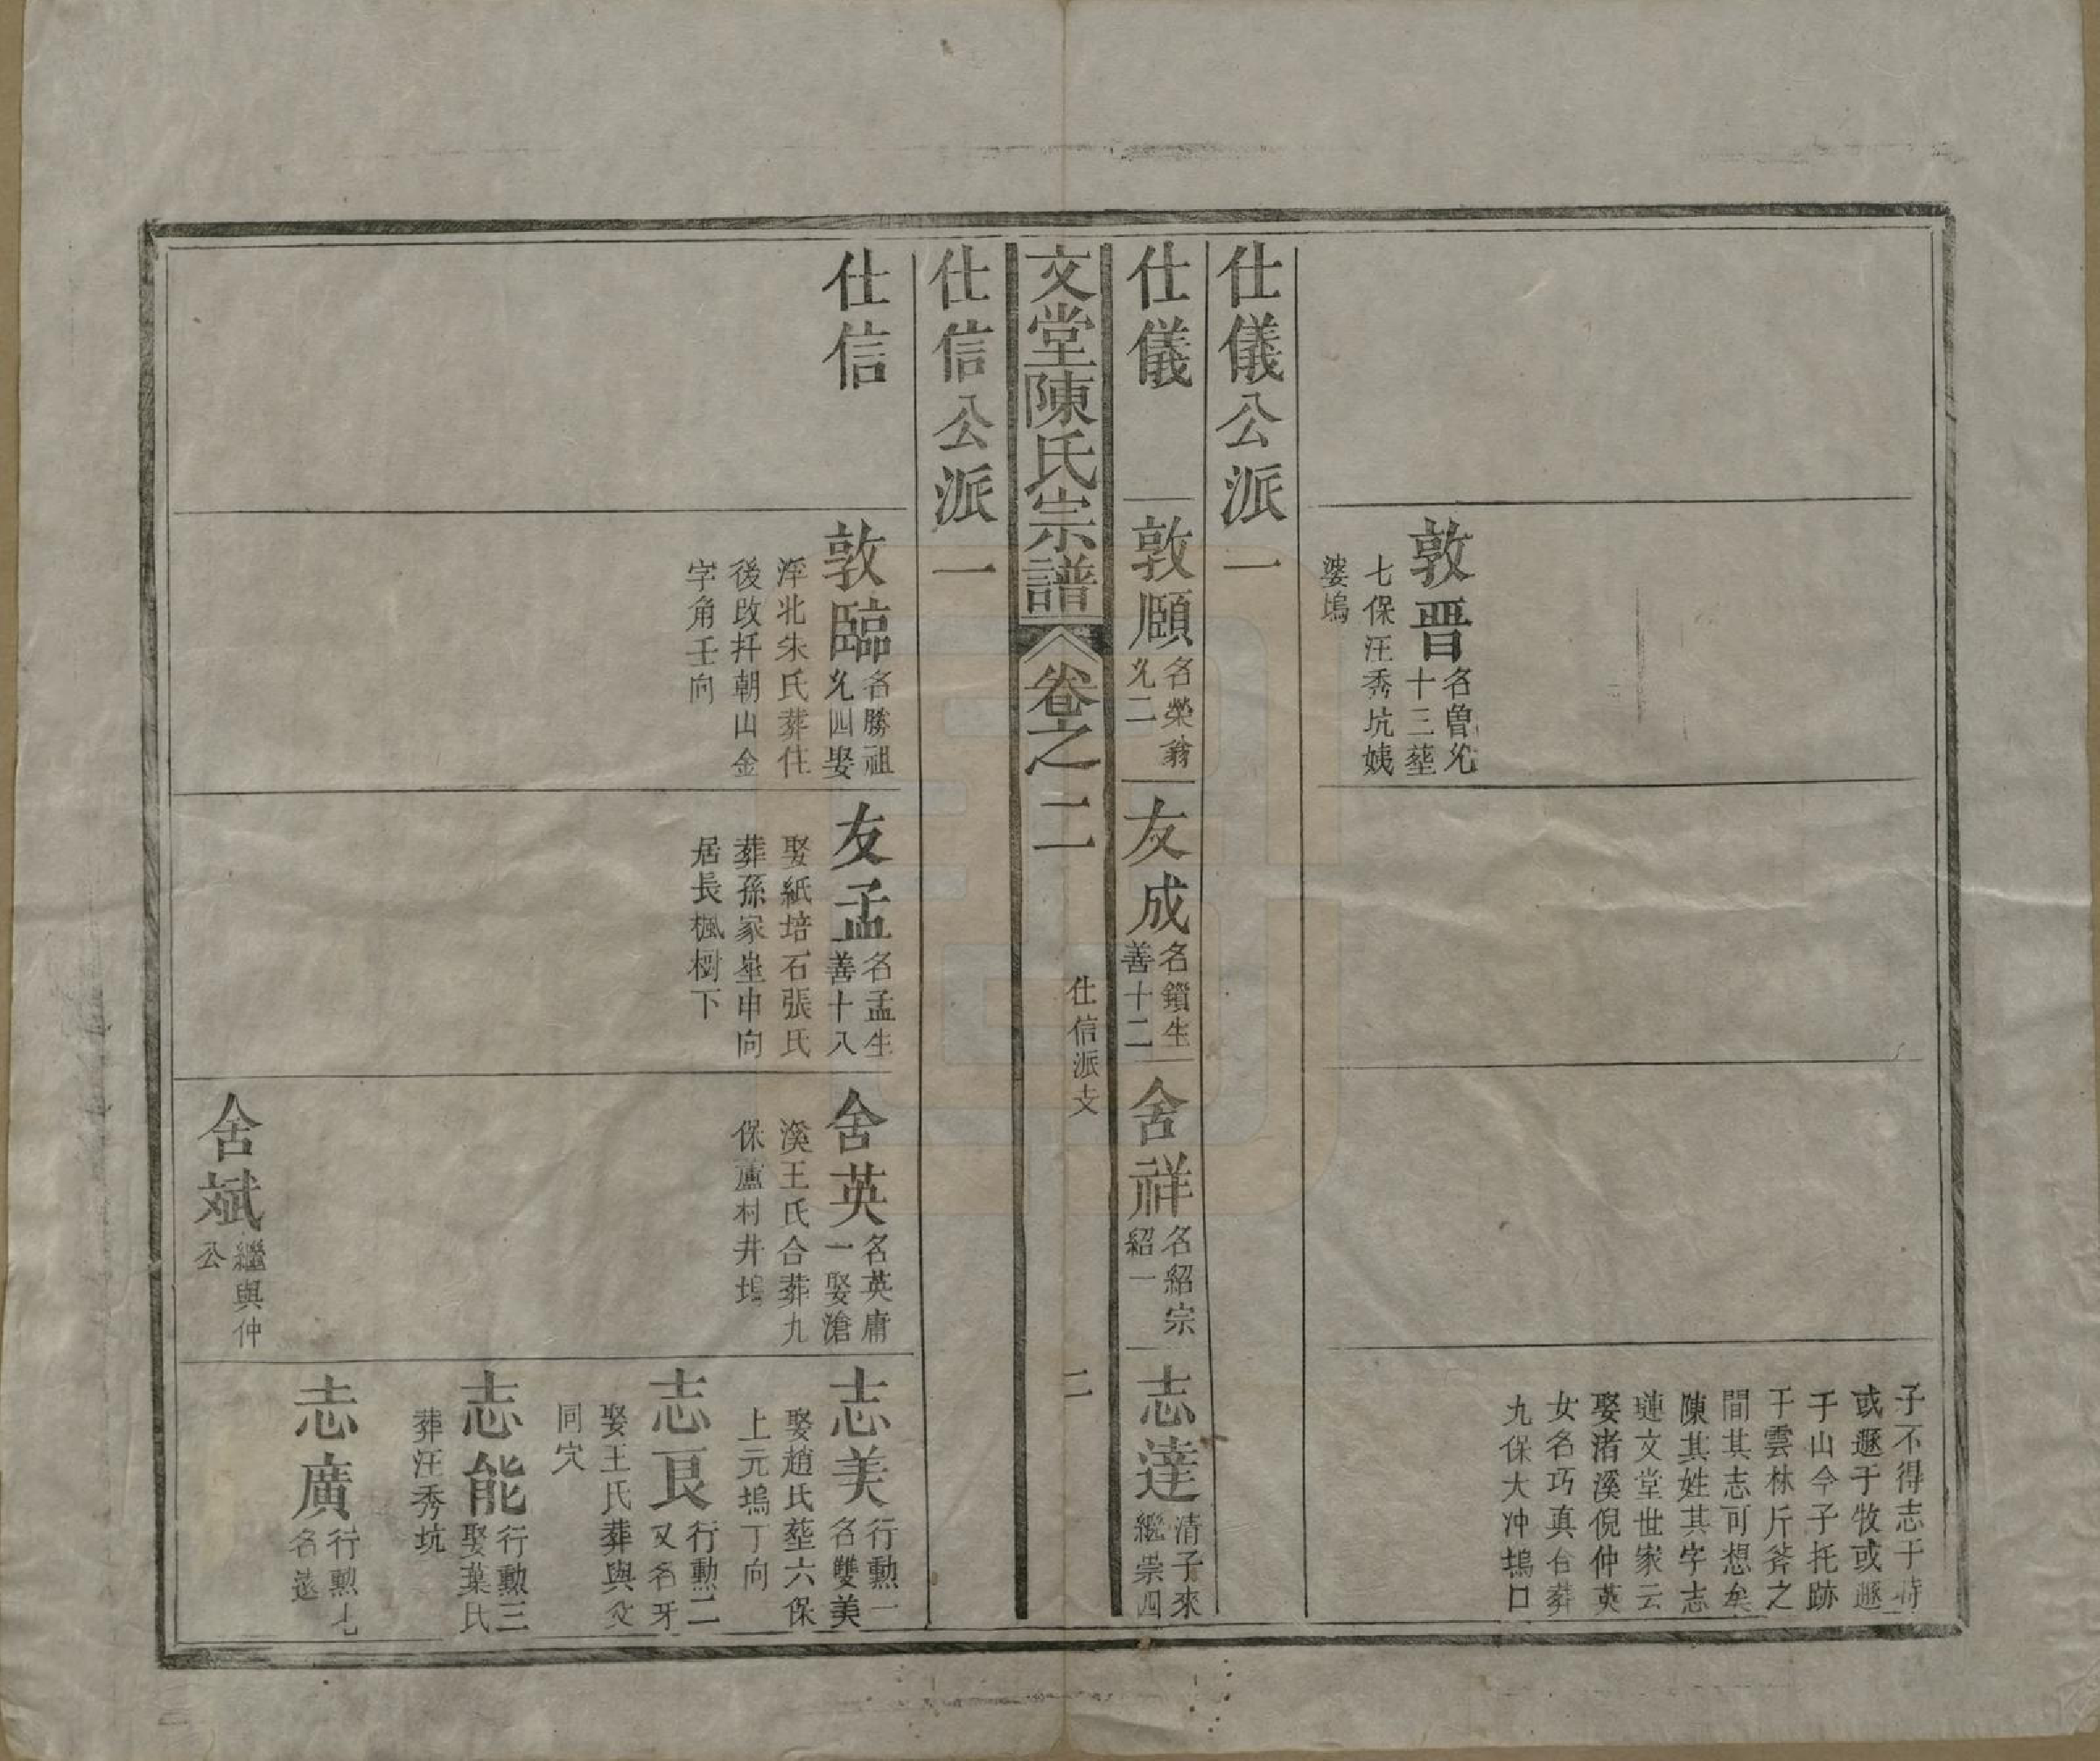 敦晋
名曽兊
十三塟
七保汪秀坑姨
婆塢
子不得志于時
或遯于牧或遯
于山今子托跡
于雲林斤斧之
間其志可想矣
陳其姓其字志
璉文堂世家云
娶渚溪倪仲英
女名巧真合葬
九保大冲塢口
仕儀公派一
仕儀
敦頤
名榮翁
兊二
友成
名鎖生
善十二
舍祥
名紹宗
紹一
志達
清子來
繼崇四
文堂陳氏宗譜
卷之二
仕信派支
二
仕信公派一
仕信
敦臨
名勝祖
兊四娶
浮北朱氏葬住
後改扦朝山金
字角壬向
友孟
名孟生
善十八
娶紙培石張氏
葬孫家坐申向
居長楓樹下
舍英
名英庸
一娶滄
溪王氏合葬九
保蘆村井塢
舍斌
繼與仲
公
志美
行勲一
名雙美
娶趙氏塟六保
上元塢丁向
志良
行勲二
又名牙
娶王氏葬與父
同穴
志能
行勲三
娶葉氏
葬汪秀坑
志廣
行勲七
名遠